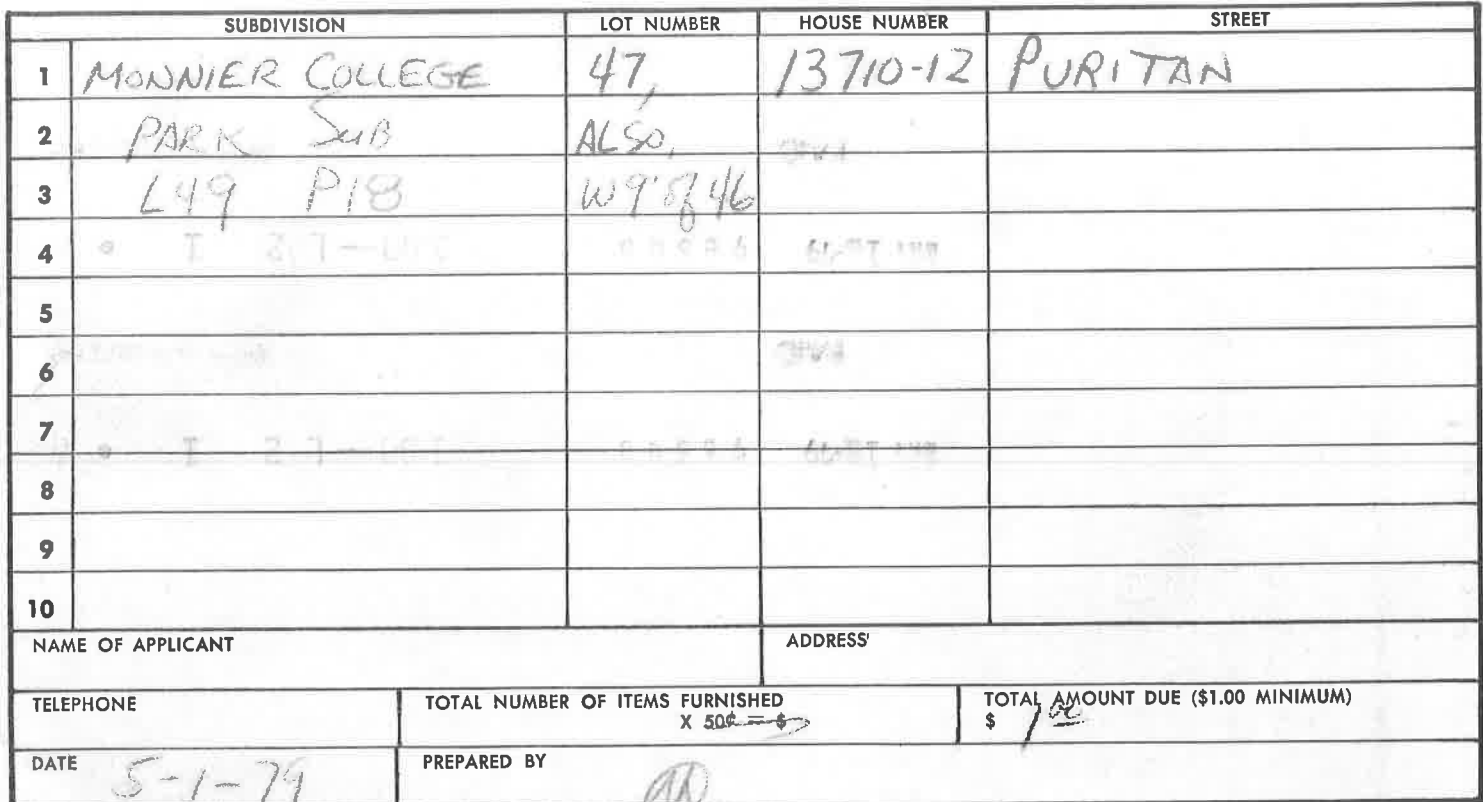 SUBDIVISION LOT NUMBER HOUSE NUMBER STREET
1 MONNIER COLLEGE 47, 13710-12 PURITAN
2 PARK SUB ALSO,
3 L49 P18 W 9' of 46
4
5
6
7
8
9
10
NAME OF APPLICANT ADDRESS'
TELEPHONE TOTAL NUMBER OF ITEMS FURNISHED TOTAL AMOUNT DUE ($1.00 MINIMUM)
X 50¢ = $ $ 1 00
DATE 5-1-79 PREPARED BY